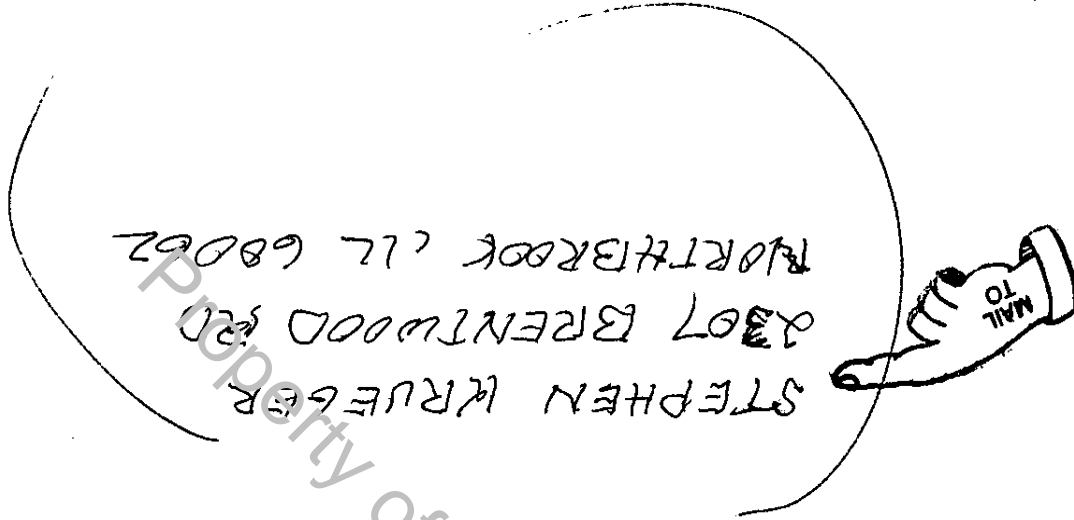 MAIL
TO
STEPHEN KRUEGER
2307 BRENTWOOD RD
NORTHBROOK ILL 60062
Property of